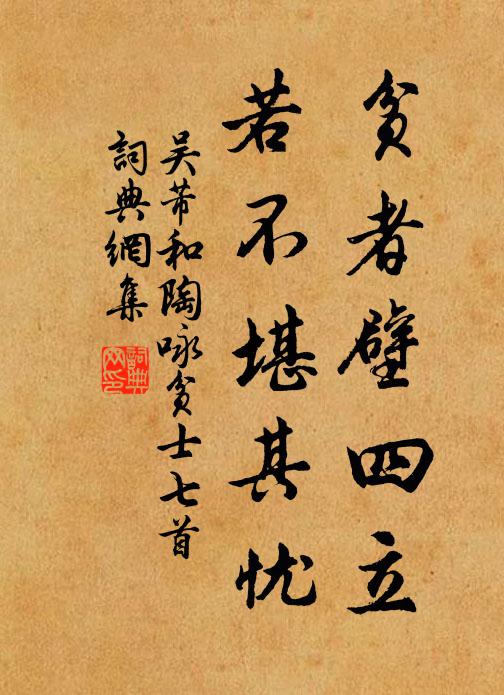 贫者壁四立
若不堪其忧
吴芾和陶咏贫士七首
詞典網集
詞典
网印